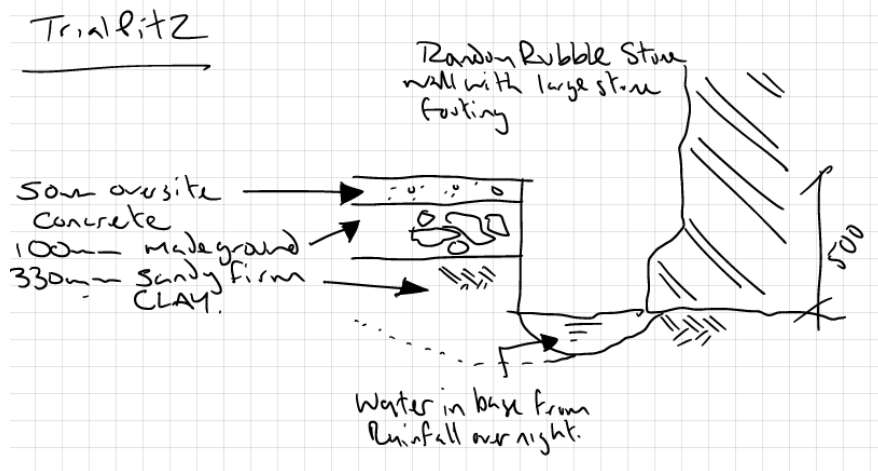 Trial Pit 2
Random Rubble Stone
wall with large stone
footing
50mm oversite
concrete
100mm made ground
330mm sandy firm
CLAY.
500
Water in base from
Rainfall over night.